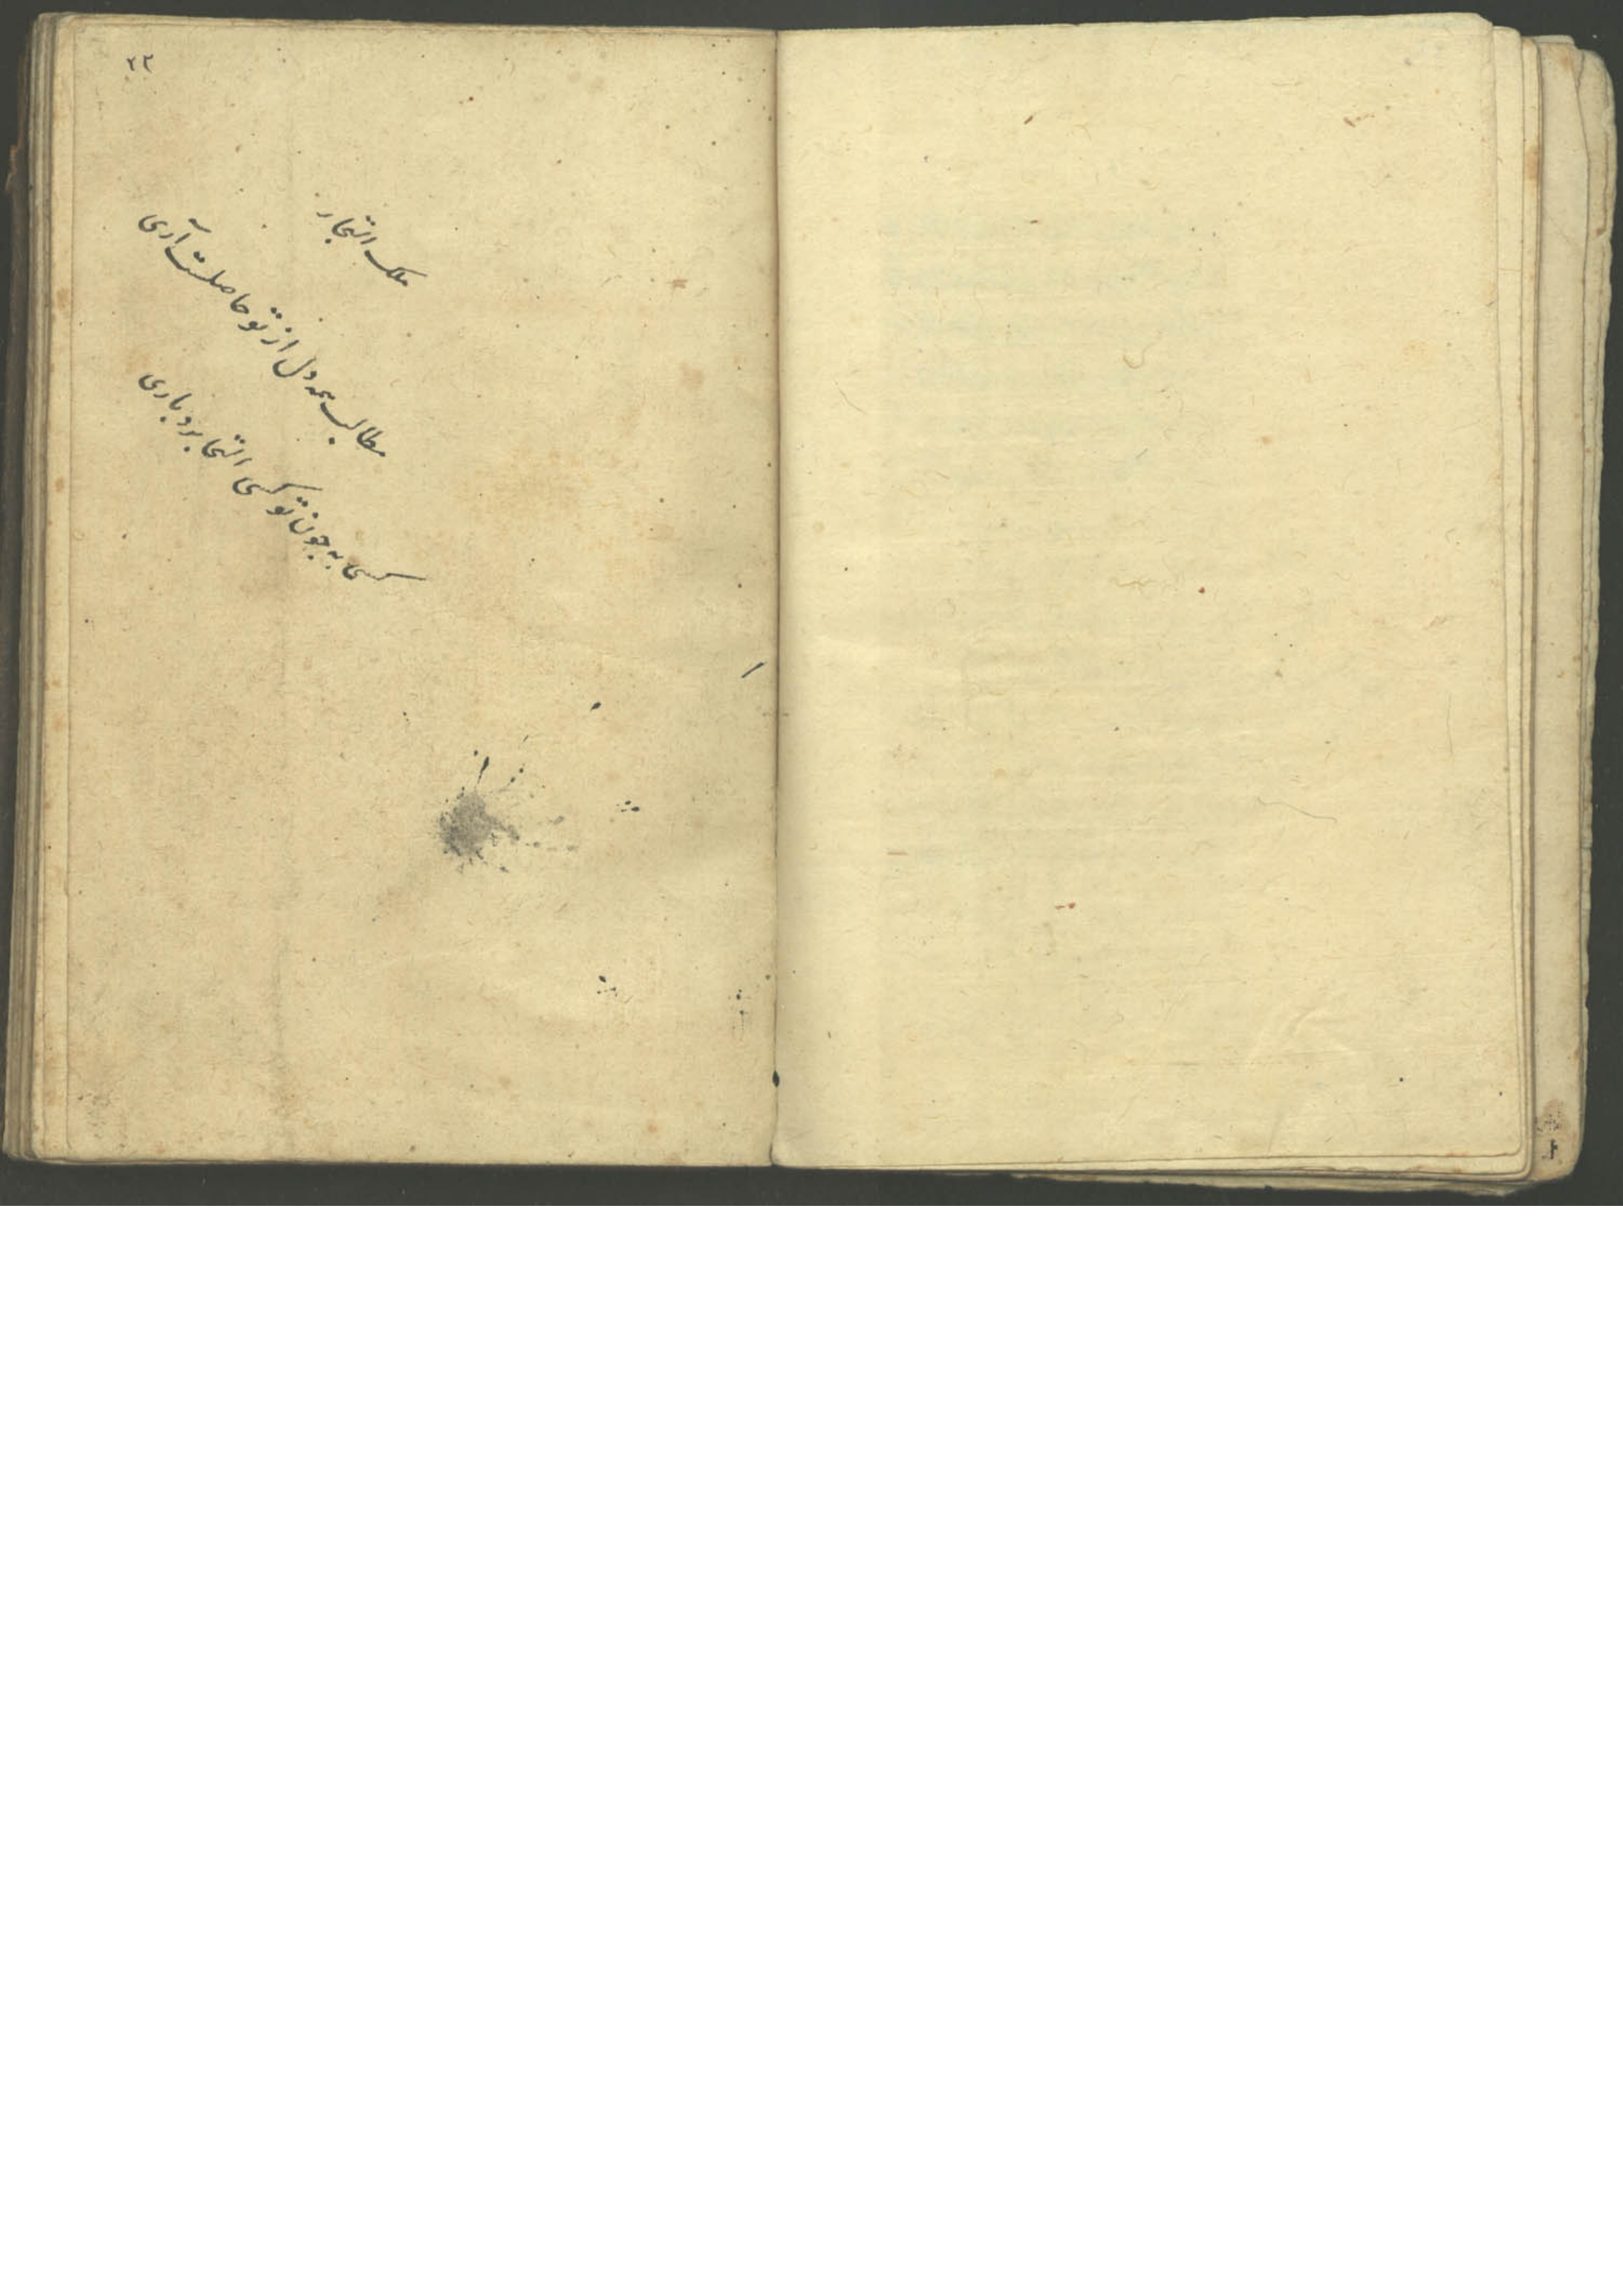 ۲۳
ملک التجار
مطالب همه دل از تو حاصلست آری
کسی به چون تو کسی التجا برد باری